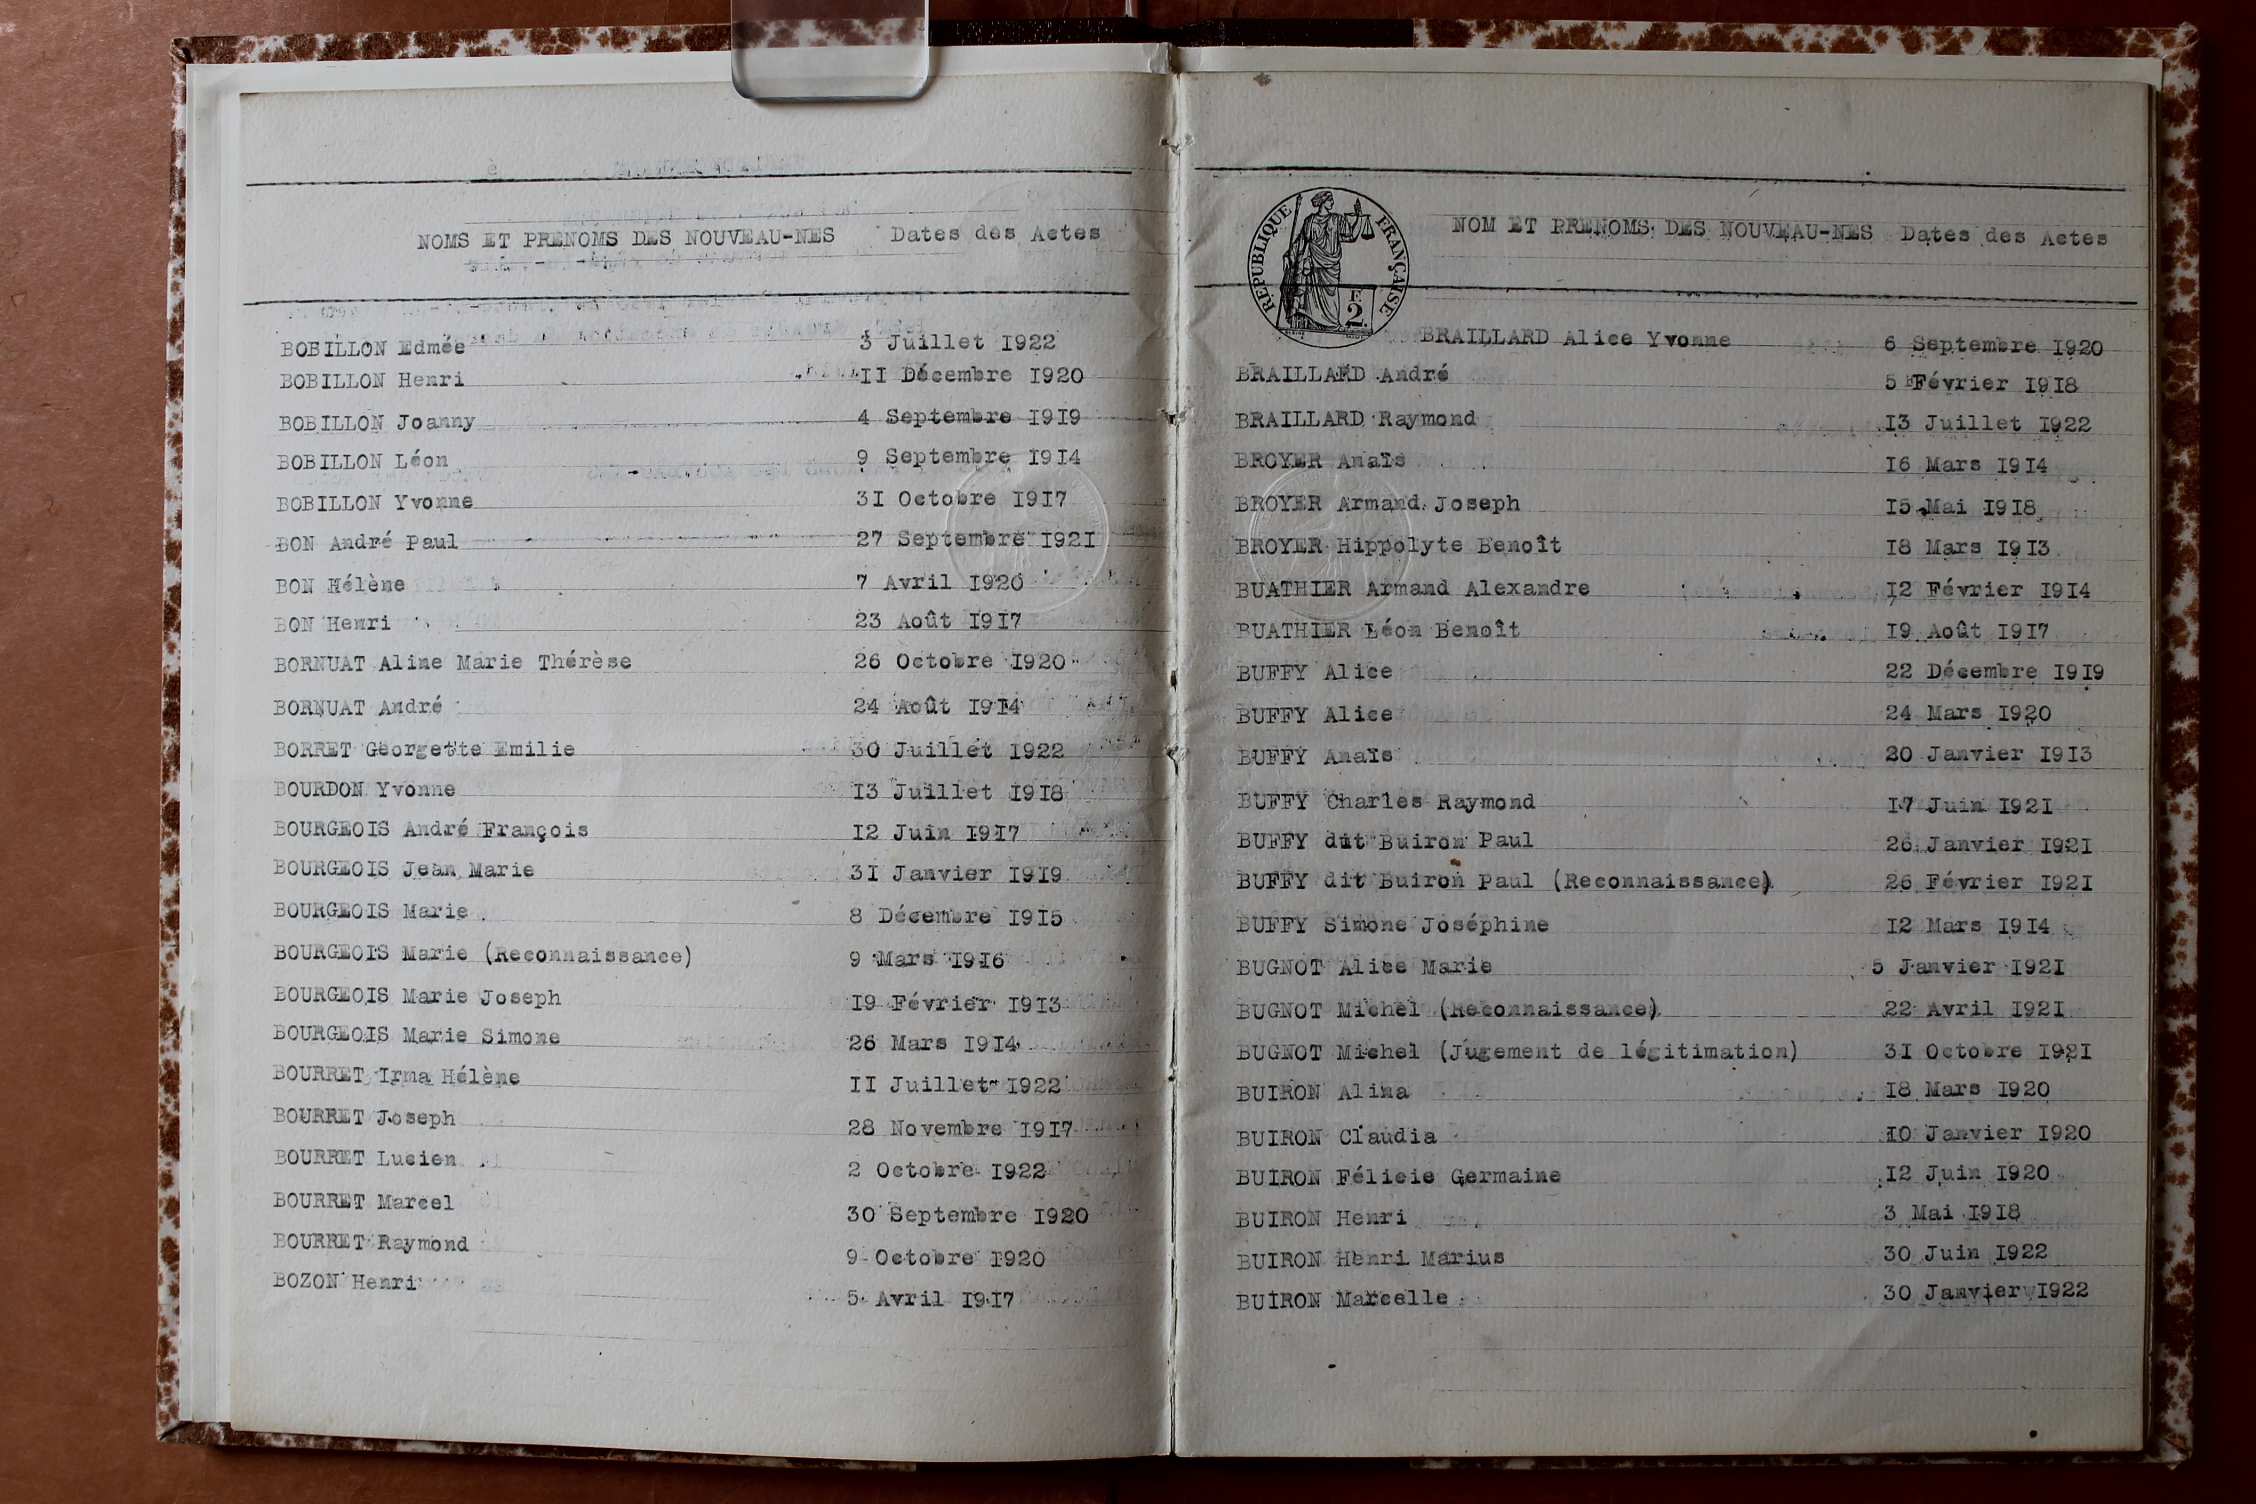 NOMS ET PRENOMS DES NOUVEAU-NES Dates des Actes
BOBILLON Edmée 3 Juillet I922
BOBILLON Henri II Décembre I920
BOBILLON Joanny 4 Septembre I9I9
BOBILLON Léon 9 Septembre I9I4
BOBILLON Yvonne 3I Octobre I9I7
BON André Paul 27 Septembre I92I
BON Hélène 7 Avril I920
BON Henri 23 Août I9I7
BORNUAT Aline Marie Thérèse 26 Octobre I920
BORNUAT André 24 Août I9I4
BORRET Georgette Emilie 30 Juillet I922
BOURDON Yvonne I3 Juillet I9I8
BOURGEOIS André François I2 Juin I9I7
BOURGEOIS Jean Marie 3I Janvier I9I9
BOURGEOIS Marie 8 Décembre I9I5
BOURGEOIS Marie (Reconnaissance) 9 Mars I9I6
BOURGEOIS Marie Joseph I9 Février I9I3
BOURGEOIS Marie Simone 26 Mars I9I4
BOURRET Irma Hélène II Juillet I922
BOURRET Joseph 28 Novembre I9I7
BOURRET Lucien 2 Octobre I922
BOURRET Marcel 30 Septembre I920
BOURRET Raymond 9 Octobre I920
BOZON Henri 5 Avril I9I7
REPUBLIQUE FRANÇAISE
F.
2.
NOM ET PRENOMS DES NOUVEAU-NES Dates des Actes
BRAILLARD Alice Yvonne 6 Septembre I920
BRAILLARD André 5 Février I9I8
BRAILLARD Raymond I3 Juillet I922
BROYER Anaïs I6 Mars I9I4
BROYER Armand Joseph I5 Mai I9I8
BROYER Hippolyte Benoît I8 Mars I9I3
BUATHIER Armand Alexandre I2 Février I9I4
BUATHIER Léon Benoît I9 Août I9I7
BUFFY Alice 22 Décembre I9I9
BUFFY Alice 24 Mars I920
BUFFY Anaïs 20 Janvier I9I3
BUFFY Charles Raymond I7 Juin I92I
BUFFY dit Buiron Paul 26 Janvier I92I
BUFFY dit Buiron Paul (Reconnaissance) 26 Février I92I
BUFFY Simone Joséphine I2 Mars I9I4
BUGNOT Alice Marie 5 Janvier I92I
BUGNOT Michel (Reconnaissance) 22 Avril I92I
BUGNOT Michel (Jugement de légitimation) 3I Octobre I92I
BUIRON Alina I8 Mars I920
BUIRON Claudia I0 Janvier I920
BUIRON Félicie Germaine I2 Juin I920
BUIRON Henri 3 Mai I9I8
BUIRON Henri Marius 30 Juin I922
BUIRON Marcelle 30 Janvier I922